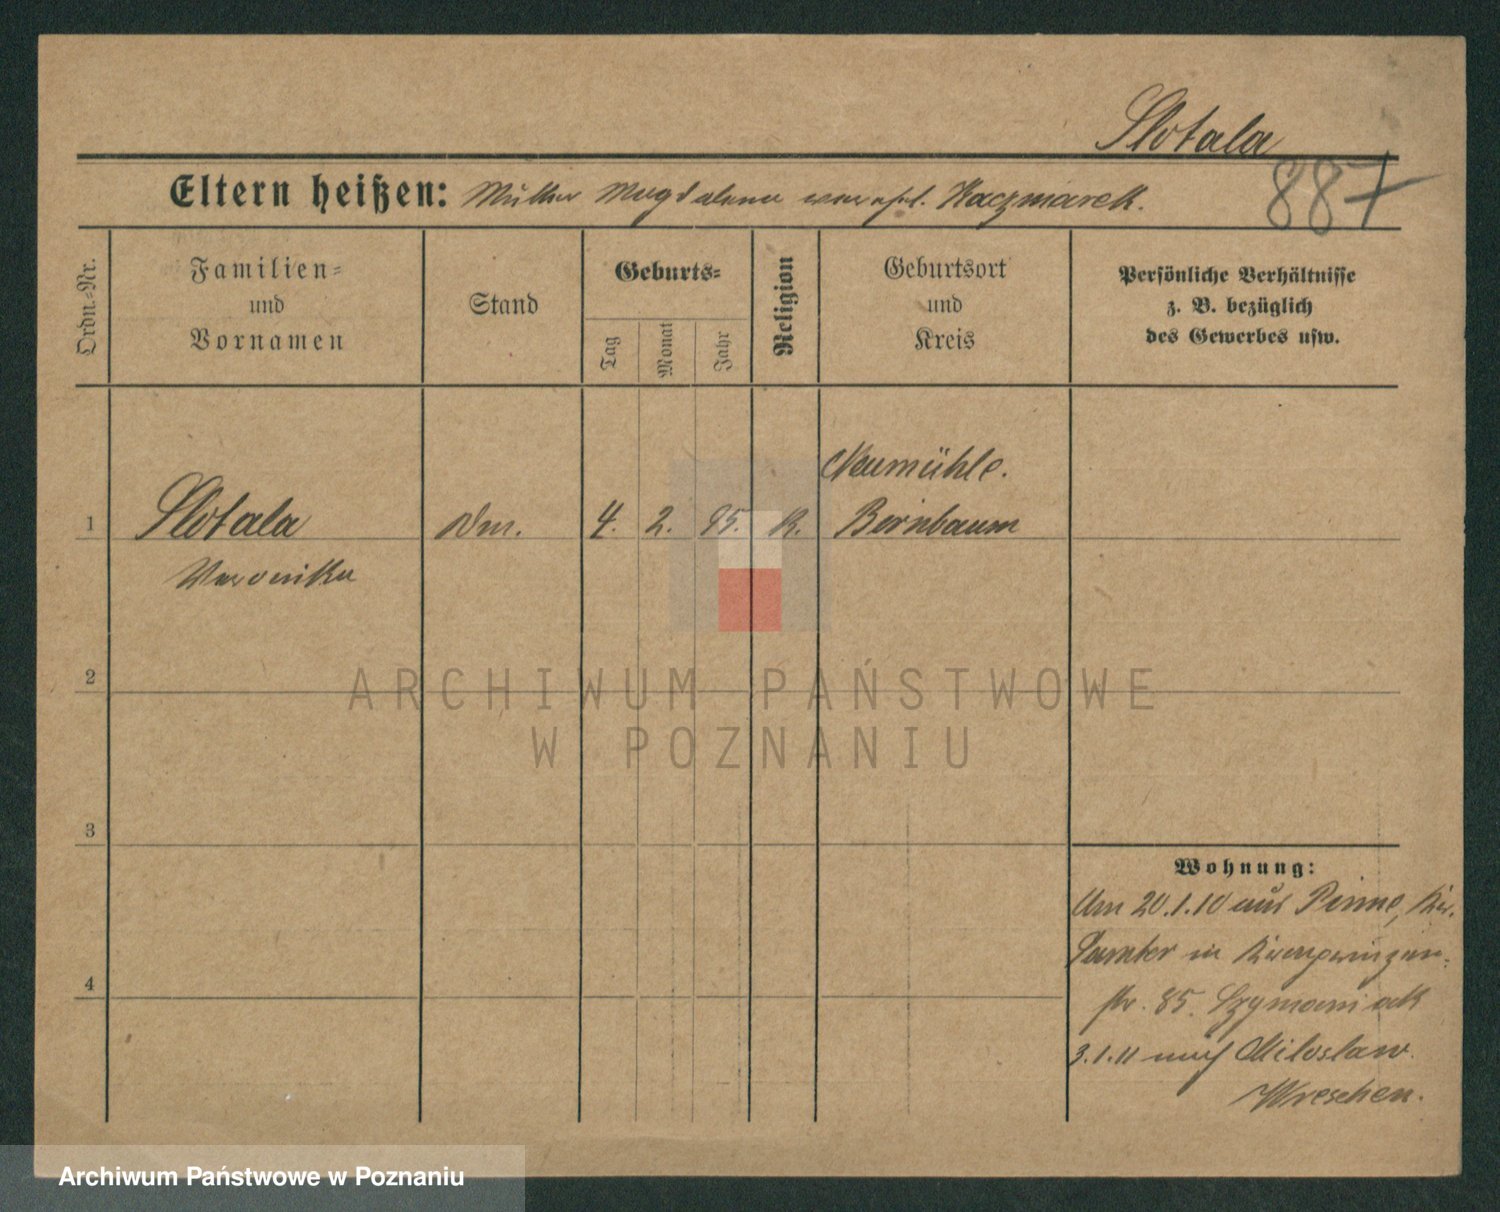 Slotala
887
Eltern heißen: Mutter Magdalena verehl. Kaczmarek.
Ordn.-Nr.
Familien-
und
Vornamen
Stand
Geburts-
Tag
Monat
Jahr
Religion
Geburtsort
und
Kreis
Persönliche Verhältnisse
z. B. bezüglich
des Gewerbes usw.
Neumühle.
1 Slotala 4. 2. 95. K. Birnbaum
Veronika
2
ARCHIWUM PAŃSTWOWE
W POZNANIU
3
Wohnung:
Um 20.1.10 aus Pinne, Kr.
Samter in Kronprinzen-
4
str. 85. Szymaniack
3.1.11 nach Miloslaw.
Wreschen.
Archiwum Państwowe w Poznaniu